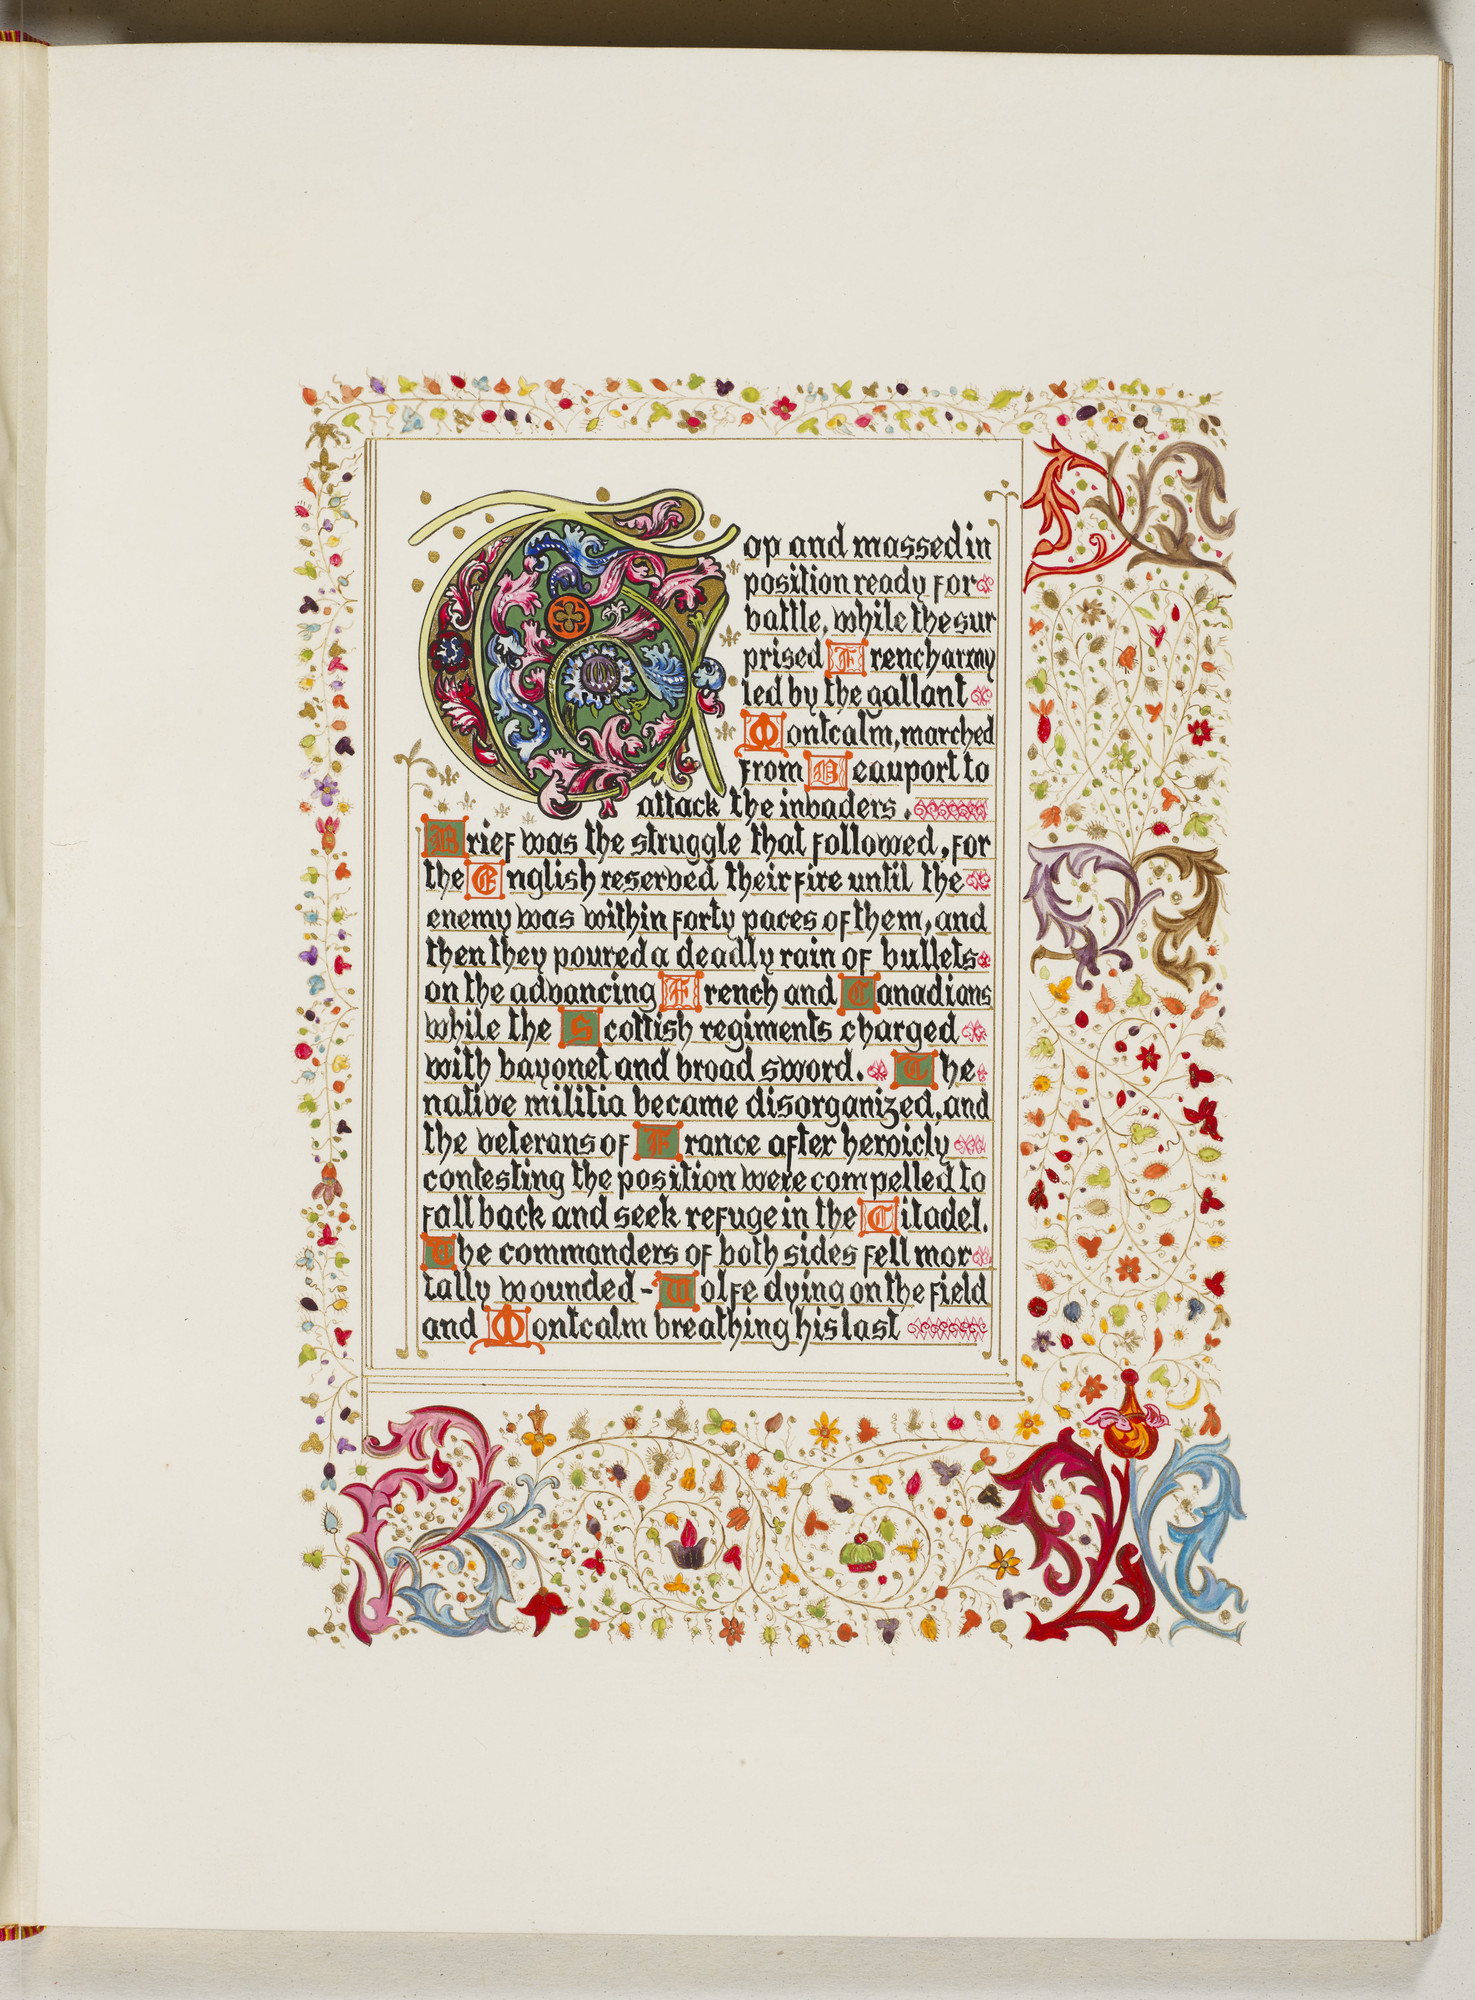 Top and massed in
position ready for
battle, while the sur
prised French army
led by the gallant
Montcalm, marched
from Beauport to
attack the invaders.
Brief was the struggle that followed, for
the English reserved their fire until the
enemy was within forty paces of them, and
then they poured a deadly rain of bullets
on the advancing French and Canadians
while the Scottish regiments charged
with bayonet and broad sword. The
native militia became disorganized, and
the veterans of France after heroicly
contesting the position were compelled to
fall back and seek refuge in the Citadel.
The commanders of both sides fell mor
tally wounded - Wolfe dying on the field
and Montcalm breathing his last